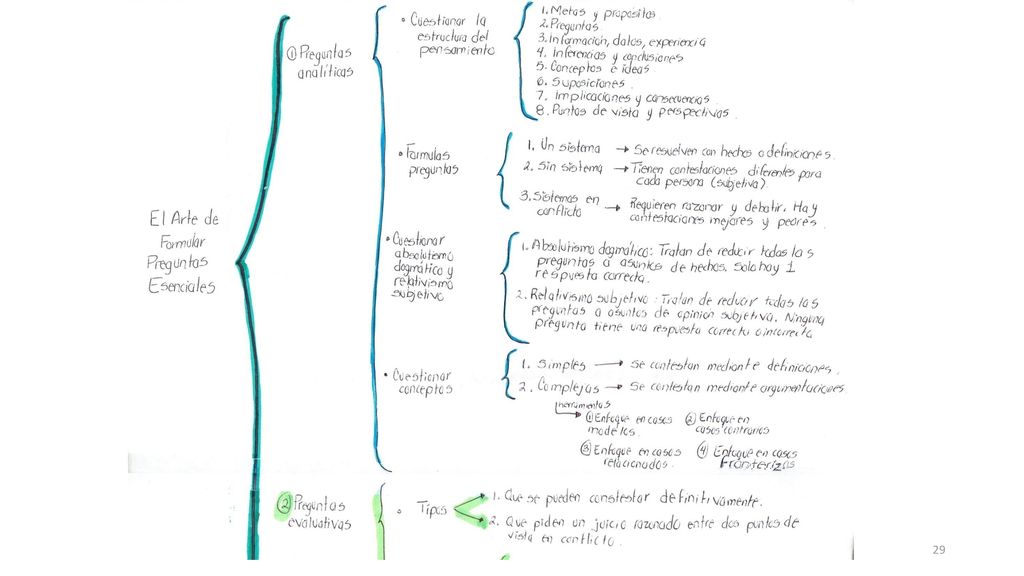 El Arte de
Formular
Preguntas
Esenciales
① Preguntas
analíticas
• Cuestionar la
estructura del
pensamiento
1. Metas y propósitos
2. Preguntas
3. Información, datos, experiencia
4. Inferencias y conclusiones
5. Conceptos e ideas
6. Suposiciones.
7. Implicaciones y consecuencias
8. Puntos de vista y perspectivas.
• Formulas
preguntas
1. Un sistema → Se resuelven con hechos o definiciones.
2. Sin sistema → Tienen contestaciones diferentes para
cada persona (subjetiva)
3. Sistemas en
conflicto → Requieren razonar y debatir. Hay
contestaciones mejores y peores.
• Cuestionar
absolutismo
dogmático y
relativismo
subjetivo
1. Absolutismo dogmático: Tratan de reducir todas las
preguntas a asuntos de hechos. Solo hay 1
respuesta correcta.
2. Relativismo subjetivo: Tratan de reducir todas las
preguntas a asuntos de opinión subjetiva. Ninguna
pregunta tiene una respuesta correcta o incorrecta
• Cuestionar
conceptos
1. Simples → Se contestan mediante definiciones.
2. Complejas → Se contestan mediante argumentaciones.
herramientas
① Enfoque en casos
modelos.
② Enfoque en
casos contrarios
③ Enfoque en casos
relacionados.
④ Enfoque en casos
Fronterizos
② Preguntas
evaluativas
• Tipos
1. Que se pueden constestar definitivamente.
2. Que piden un juicio razonado entre dos puntos de
vista en conflicto.
29